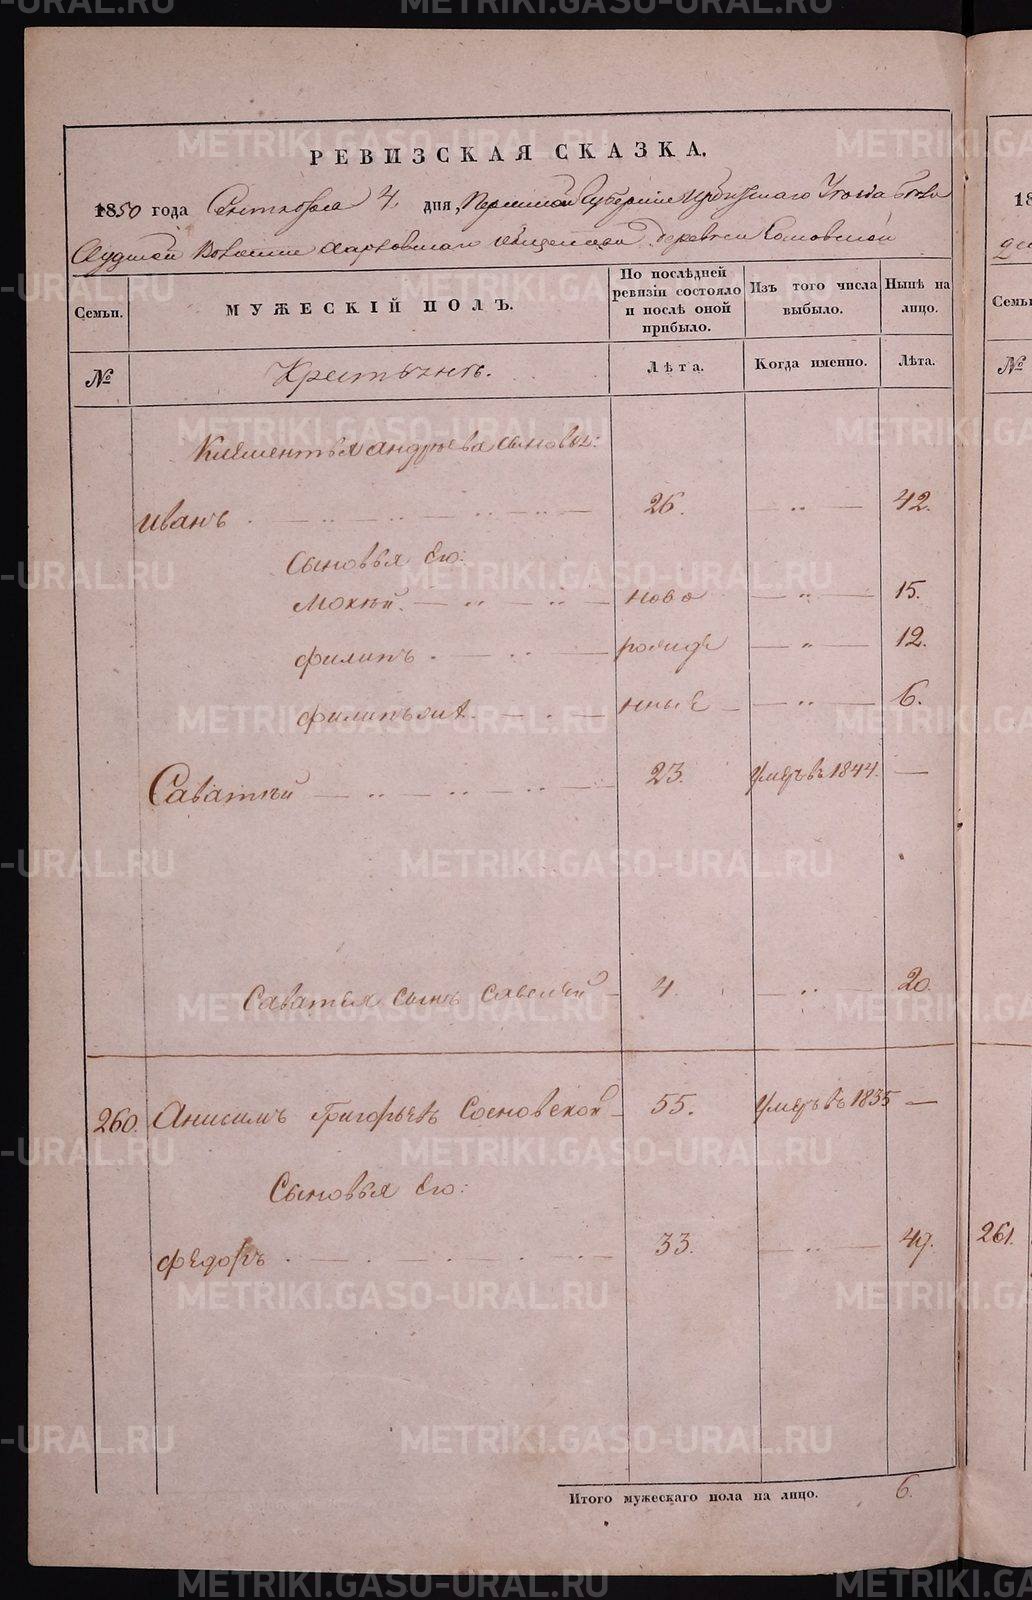 РЕВИЗСКАЯ СКАЗКА.
1850 года Сентября 4. дня, Пермской Губернии Ирбитскаго Уезда Бело
Слудской Волости Харловскаго общества деревни Сосновской
Семьи.
МУЖЕСКІЙ ПОЛЪ.
По послѣдней ревизіи состояло и послѣ оной прибыло.
Изъ того числа выбыло.
Нынѣ на лицо.
№
Крестьянъ.
Лѣта.
Когда именно.
Лѣта.
Клементья Андреева сыновья:
Иванъ 26. — „ — 42.
Сыновья Его:
Мокѣй. ново — „ — 15.
Филипъ рожде — „ — 12.
Филипъ же нные — „ — 6.
Саватѣй 23. умеръ въ 1844. —
Саватья сынъ Савелѣй 4. — „ — 20.
260. Анисимъ Григорьевъ Сосновской 55. умеръ въ 1835 —
Сыновья Его:
Федоръ 33. — „ — 49.
Итого мужескаго пола на лицо. 6.
18
Семьи
№
261.
METRIKI.GASO-URAL.RU